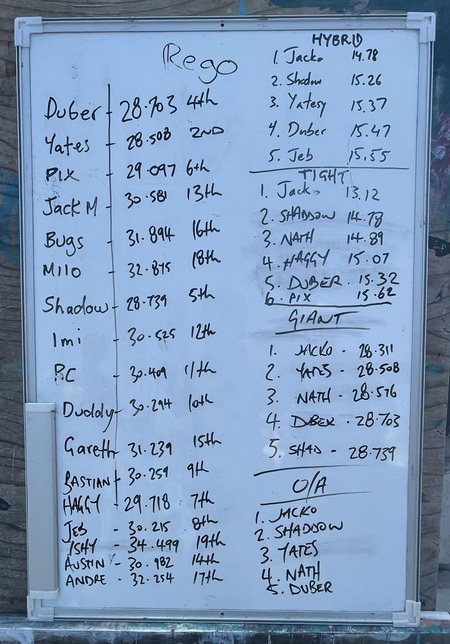 Rego
Duber - 28.703 4th
Yates - 28.508 2ND
PIX - 29.097 6th
Jack M - 30.581 13th
Bugs - 31.894 16th
Milo - 32.875 18th
Shadow - 28.739 5th
Imi - 30.525 12th
BC - 30.409 11th
Duddy - 30.294 10th
Gareth - 31.239 15th
BASTIAN - 30.259 9th
HAGGY - 29.718 7th
JEB - 30.215 8th
ISHY - 34.499 19th
AUSTIN - 30.982 14th
ANDRE - 32.254 17th
HYBRID
1. Jacko 14.78
2. Shadow 15.26
3. Yatesy 15.37
4. Duber 15.47
5. Jeb 15.55
TIGHT
1. Jacko 13.12
2. SHADDOW 14.78
3. NATH 14.89
4. HAGGY 15.07
5. DUBER. 15.32
6. PIX 15.62
GIANT
1. JACKO - 28.311
2. YATES - 28.508
3. NATH - 28.576
4. DUBER - 28.703
5. SHAD - 28.739
O/A
1. JACKO
2. SHADDOW
3. YATES
4. NATH
5. DUBER